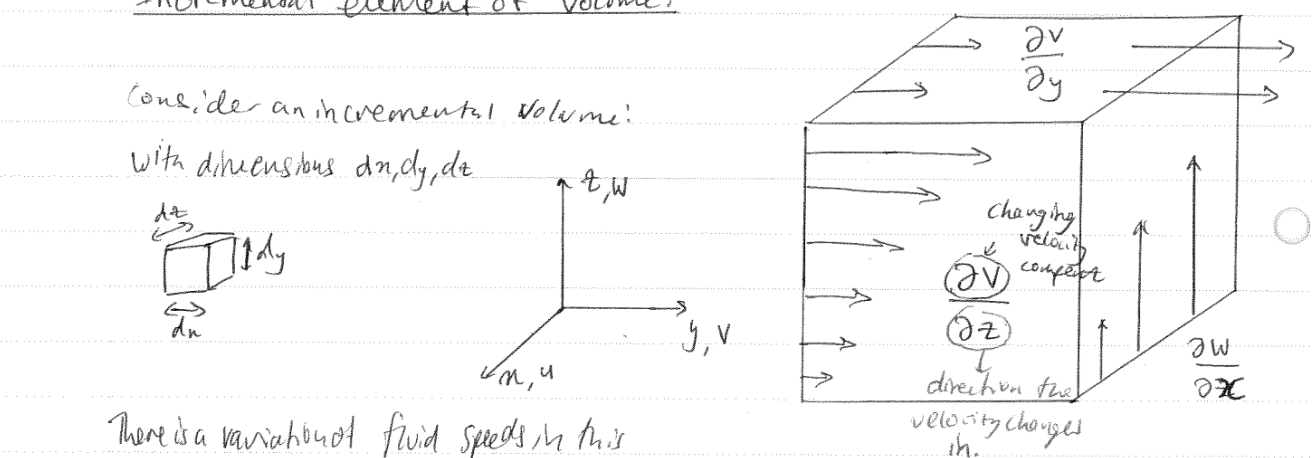 Incremental Element of Volume:
Consider an incremental volume:
with dimensions dx, dy, dz
dz
dy
dx
z, w
y, v
x, u
∂v
∂y
changing
velocity
∂v
∂z
direction the
velocity changes
in.
∂w
∂x
There is a variation of fluid speeds in this